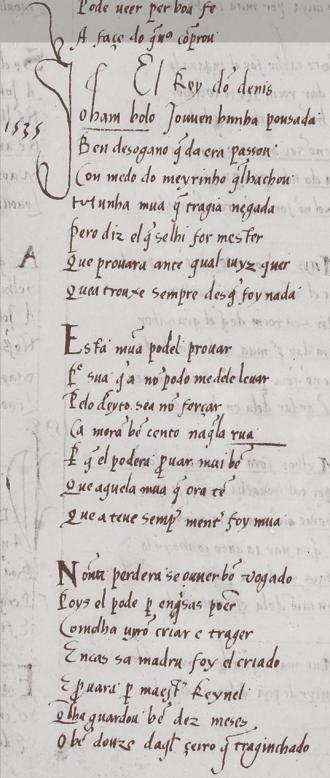 Pode ueer per boa fe
A façe do q̃ nõ cõprou
El Rey dõ denis
1535
Joham bolo Jouuen hunha pousada
Ben desogano q̃ da era passou
Con medo do meyrinho q̃ lhachou
hũa mua q̃ tragia negada
Pero diz el q̃ selhi for mester
A
Que prouara ante qual iuyz quer
Quea trouxe sempre desq̃ foy nada
Esta mua podel prouar
Por sua q̃ a nõ podõ medele leuar
Pelo deyto sea nõ forçar
Ca morã bẽ cento naq̃la rua
Per q̃ el podera prouar mui bẽ
Que aquela mua q̃ ora tẽ
Que a teue semp̃ ment̃ foy mua
Nona perdera se ouuer bõ uogado
Poys el pode per enq̃sas poer
Como lha uyrõ criar e trager
En cas sa madru foy el criado
E prouara per maestr̃ Reynel
Q̃ lha guardou bẽ dez meses
O bẽ douze daq̃l çeiro q̃ traginchado